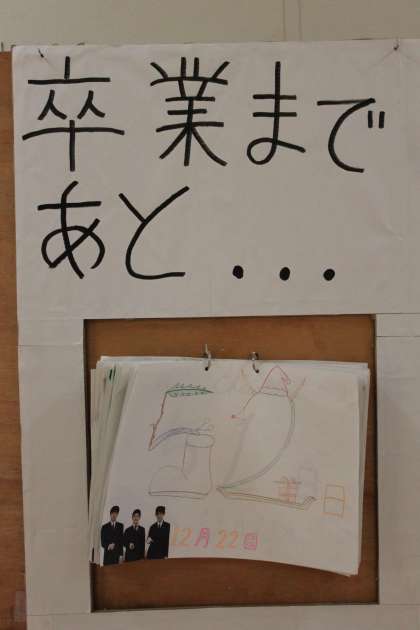 卒業まで
あと...
52日
12月22日